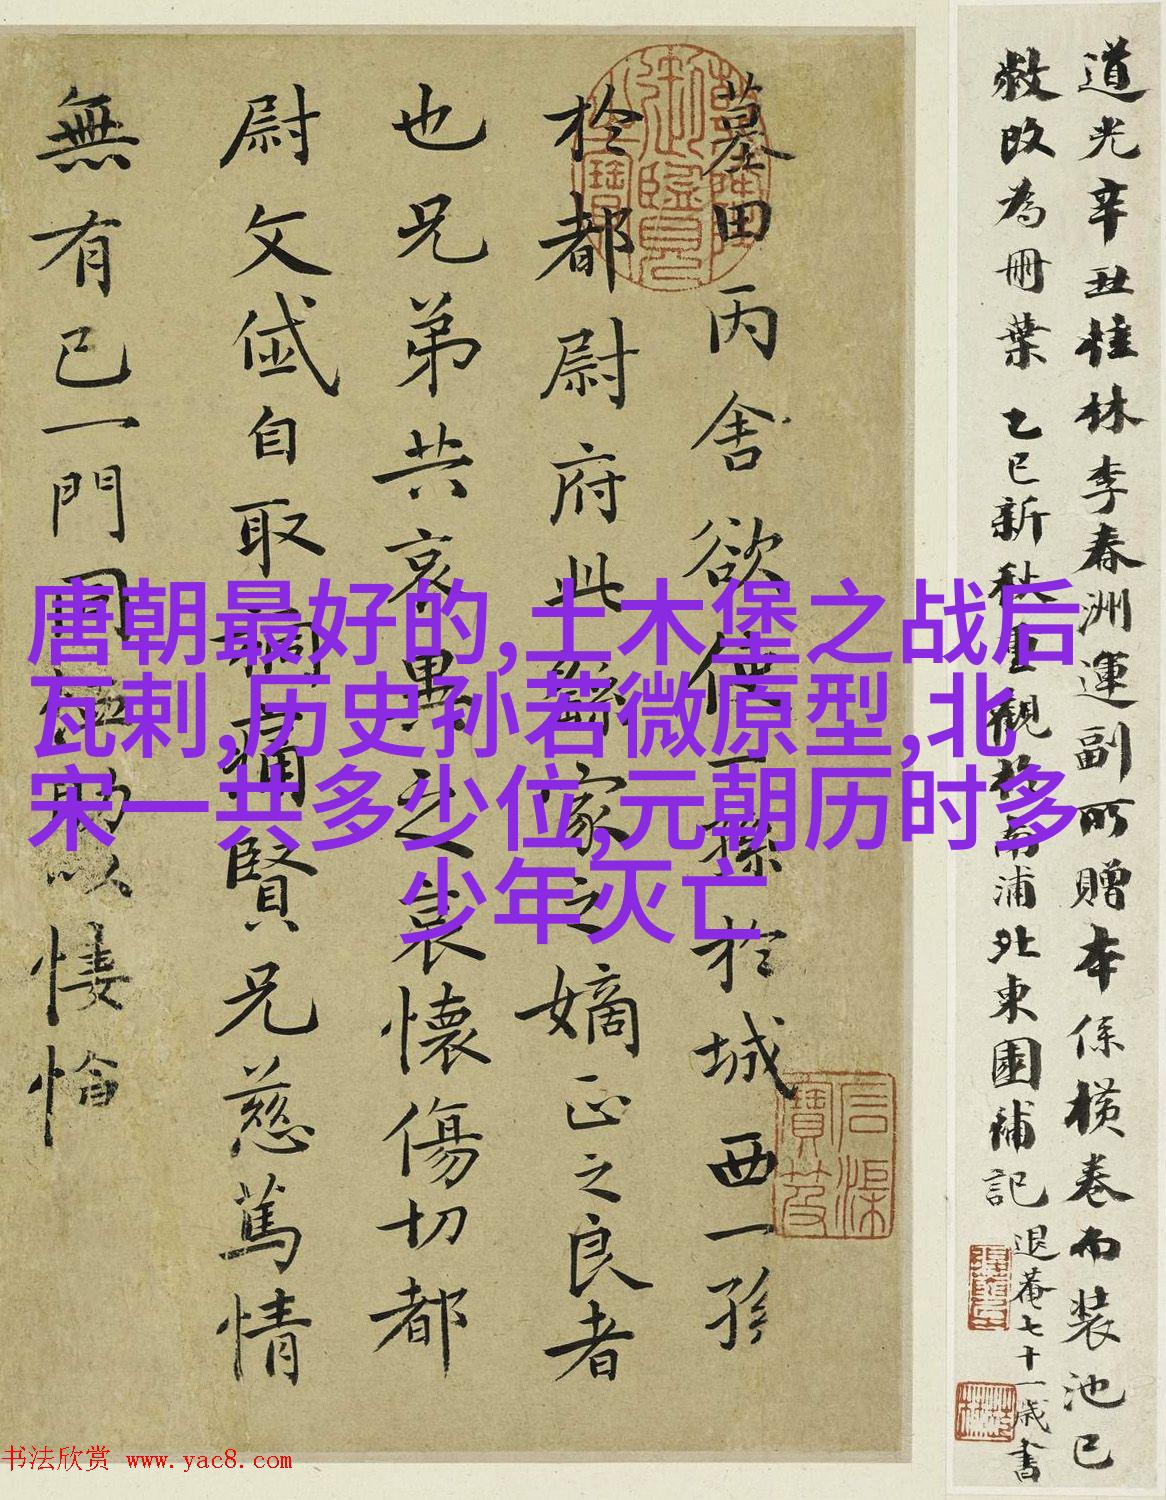 道光辛丑桂林李春洲運副所贈本係橫卷而装池已
敝改為冊葉乙巳新秋重觀於南浦北東園補記
退菴七十一歲書
墓田丙舍欲使一孫於城西一孫
於都尉府此繇家之嫡正之良者
也兄弟共哀異之哀懷傷切都
尉文岱自取禍痛賢兄慈篤情
無有已一門同恤助以悽愴
唐朝最好的,土木堡之战后
瓦剌,历史孙若微原型,北
宋一共多少位,元朝历时多
少年灭亡
书法欣赏 www.yac8.com